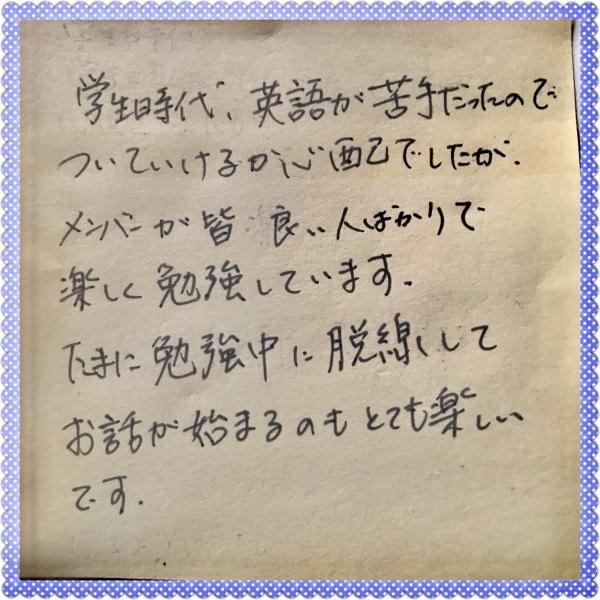 学生時代、英語が苦手だったので
ついていけるか心配でしたが、
メンバーが皆良い人ばかりで
楽しく勉強しています。
たまに勉強中に脱線して
お話が始まるのもとても楽しい
です。